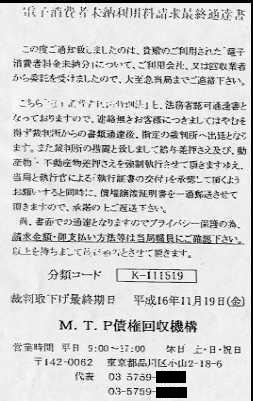 電子消費者未納利用料請求最終通達書
この度ご通知致しましたのは、貴殿のご利用された「電子
消費者料金未納分」について、ご利用会社、又は回収業者
から委託を受けましたので、大至急当局までご連絡下さい。
こちら 、法務省認可通達書と
なっておりますので、連絡無きお客様につきましてはやむを
得ず裁判所からの書類通達後、指定の裁判所へ出廷となり
ます。また裁判所の措置と致しまして給与差押さえ及び、動
産物・不動産物差押さえを強制執行させて頂きますゆえ、
当局と執行官による「執行証書の交付」を承諾して頂くよう
お願いすると同時に、債権譲渡証明書を一通郵送させて
頂きますので、承諾の上ご返送下さい。
尚、書面での通達となりますのでプライバシー保護の為、
請求金額・御支払い方法等は当局職員にご確認下さい。
以上を持ちまして とさせて頂きます。
分類コード K-111519
裁判取下げ最終期日 平成16年11月19日(金)
M.T.P債権回収機構
営業時間 平日 9:00~17:00 休日 土・日・祝日
〒142-0062 東京都品川区小山2-18-6
代表 03-5759-
03-5759-